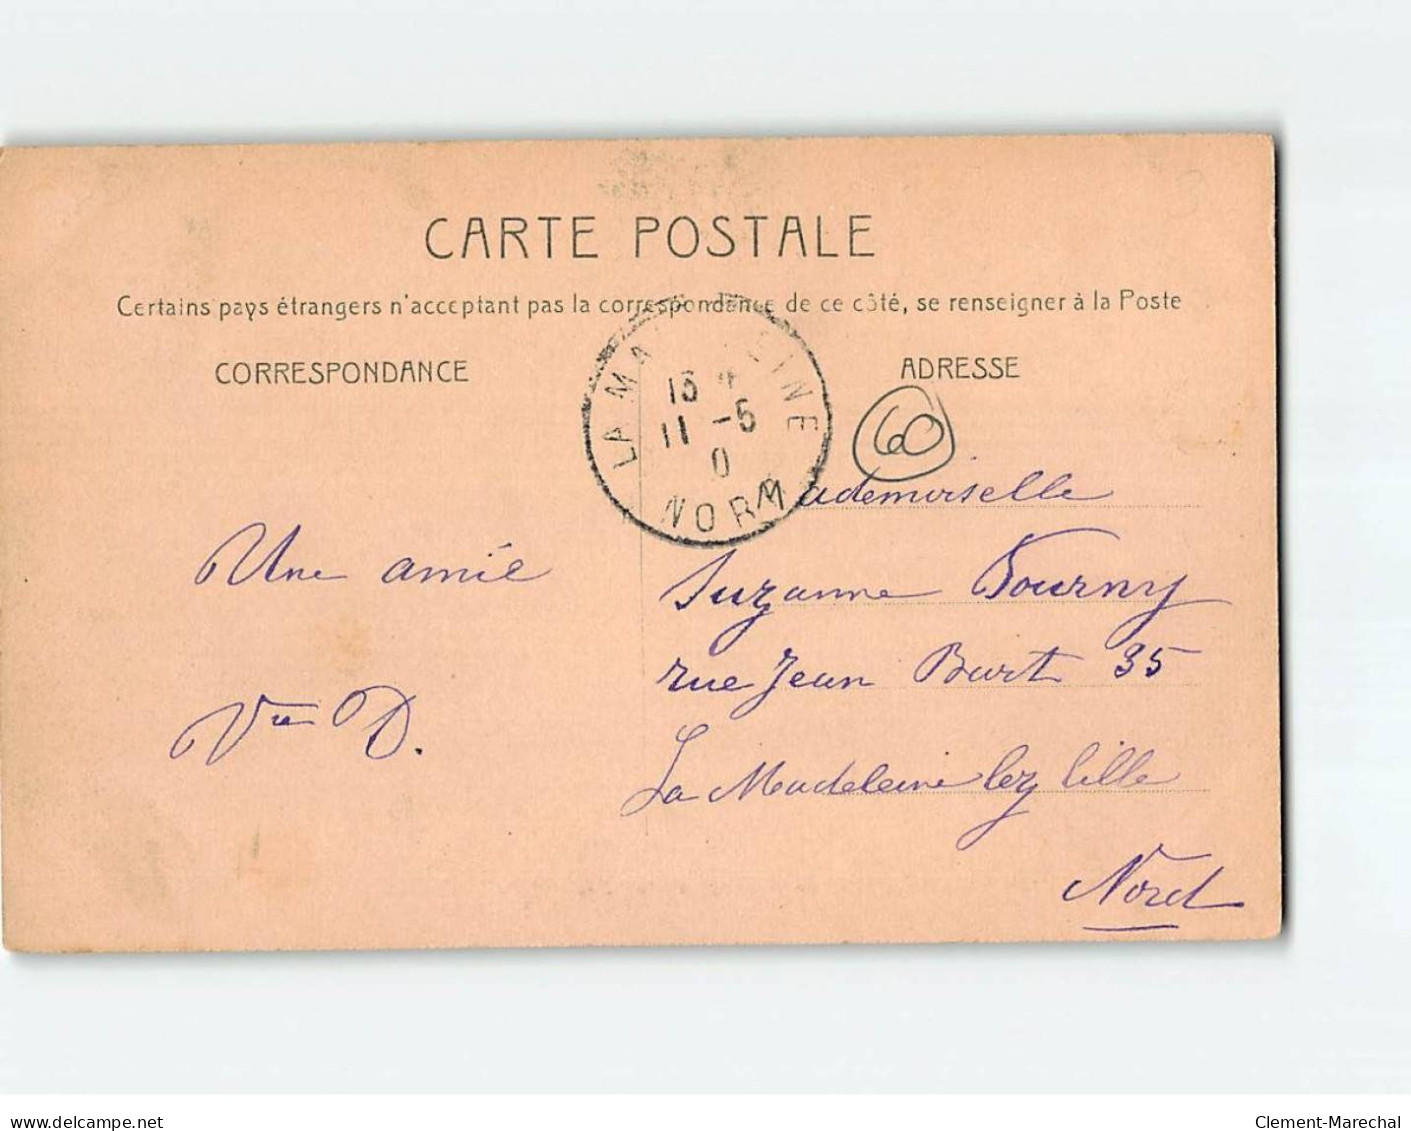 CARTE POSTALE
Certains pays étrangers n'acceptant pas la correspondance de ce côté, se renseigner à la Poste
CORRESPONDANCE
ADRESSE
60
LA MADELEINE
11 -5
NORD
Mademoiselle
Une amie
Suzanne Tourny
rue Jean Bart 35
Vve D.
La Madeleine lez Lille
Nord
www.delcampe.net
Clement-Marechal